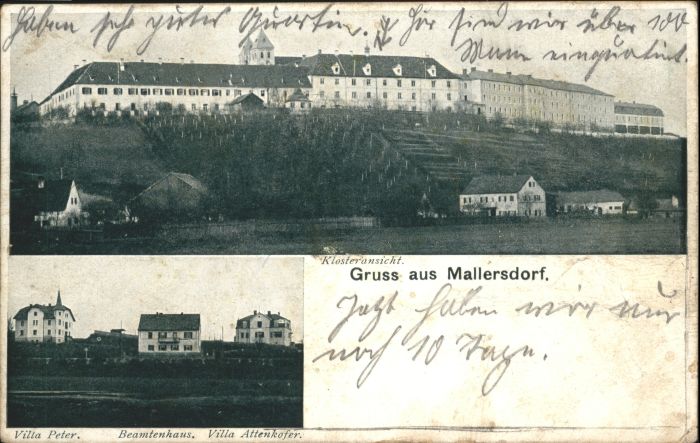 Haben sehr gutes Quartir. Hir sind wir über 100
Mann einquatirt.
Klosteransicht.
Gruss aus Mallersdorf.
Jetzt haben wir nur
noch 10 Tage.
Villa Peter. Beamtenhaus. Villa Attenkofer.